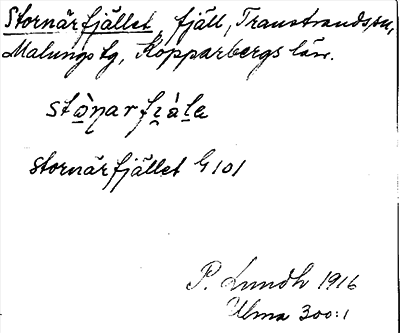 Stornärfjället fjäll, Transtrands sn,
Malungs tg, Kopparbergs län.
stɷ̀ṇarfi̯àlɛ
stornärfjället G 101
P. Lundh 1916
Ulma 300:1